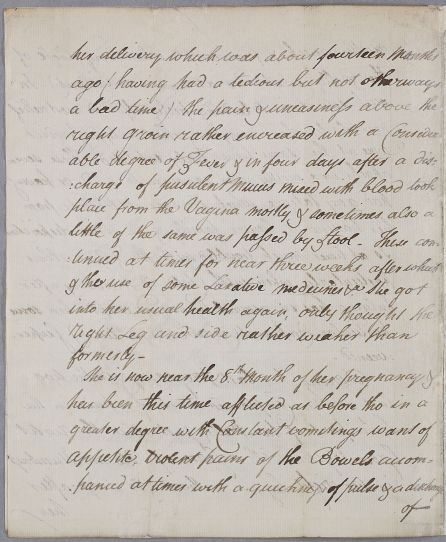 her delivery which was about fourteen Months
ago (having had a tedious but not otherways
a bad time) the pain & uneasiness above the
right groin rather encreased with a Consider
able degree of Fever & in four days after a dis
:charge of purulent Mucus mixed with blood took
place from the Vagina mostly & sometimes also a
little of the same was passed by stool - These con
:tinued at times for near three weeks after which
& the use of some Laxative medicines she got
into her usual health again, only thought the
right Leg and side rather weaker than
formerly -
She is now near the 8th Month of her pregnancy &
has been this time afflicted as before tho in a
greater degree with Constant vomitings want of
appetite, violent pains of the Bowels accom-
:panied at times with a quickness of pulse & a discharge
of